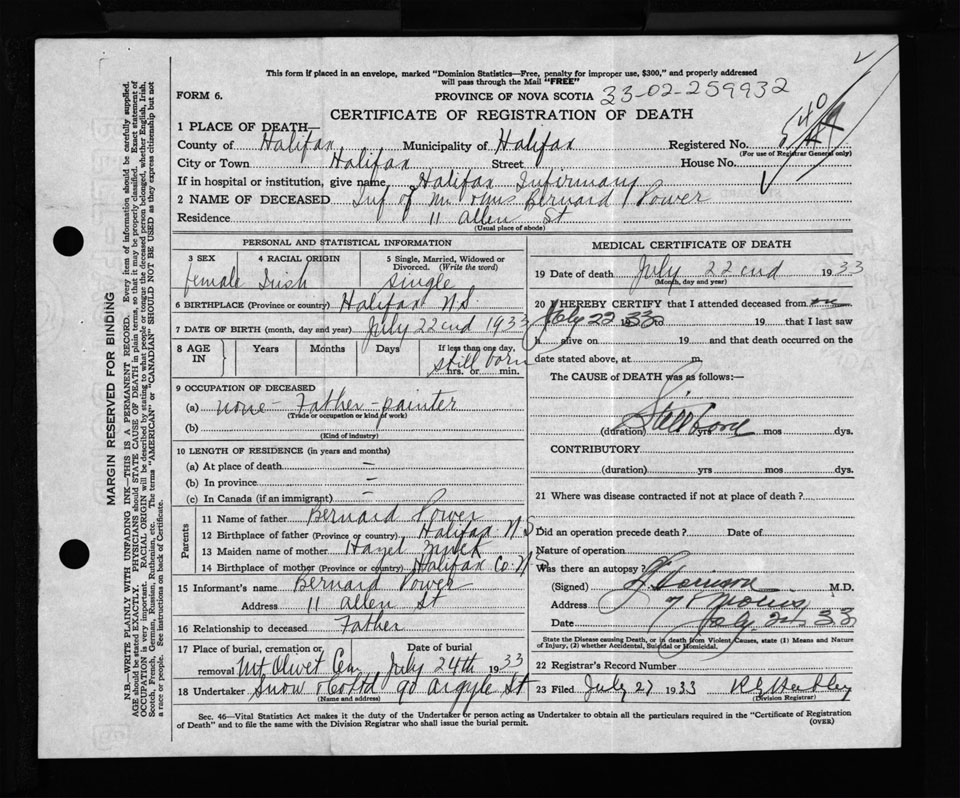 This form if placed in an envelope, marked "Dominion Statistics—Free, penalty for improper use, $300," and properly addressed
will pass through the Mail "FREE"
FORM 6.
PROVINCE OF NOVA SCOTIA 33-02-259932
CERTIFICATE OF REGISTRATION OF DEATH
1 PLACE OF DEATH—
County of Halifax Municipality of Halifax Registered No.
(For use of Registrar General only)
City or Town Halifax Street House No.
If in hospital or institution, give name Halifax Infirmary
2 NAME OF DECEASED Inf of Mr & Mrs Bernard Power
Residence 11 Allen St
(Usual place of abode)
PERSONAL AND STATISTICAL INFORMATION
3 SEX 4 RACIAL ORIGIN 5 Single, Married, Widowed or
Divorced. (Write the word)
female Irish Single
6 BIRTHPLACE (Province or country) Halifax N.S.
7 DATE OF BIRTH (month, day and year) July 22cnd 1933
8 AGE IN Years Months Days If less than one day,
still born
hrs. or min.
9 OCCUPATION OF DECEASED
(a) none - Father - painter
(Trade or occupation or kind of work)
(b)
(Kind of industry)
10 LENGTH OF RESIDENCE (in years and months)
(a) At place of death –
(b) In province –
(c) In Canada (if an immigrant) –
Parents
11 Name of father Bernard Power
12 Birthplace of father (Province or country) Halifax N.S.
13 Maiden name of mother Hazel
14 Birthplace of mother (Province or country) Halifax Co. N.S.
15 Informant's name Bernard Power
Address 11 Allen St
16 Relationship to deceased Father
17 Place of burial, cremation or Date of burial
removal Mt Olivet Cem July 24th 1933
18 Undertaker Snow & Co Ltd 90 Argyle St
(Name and address)
MEDICAL CERTIFICATE OF DEATH
19 Date of death July 22cnd 1933
(Month, day and year)
20 I HEREBY CERTIFY that I attended deceased from
July 22 1933 to 19 that I last saw
h alive on 19 and that death occurred on the
date stated above, at m.
The CAUSE of DEATH was as follows:—
Still born
(duration) yrs mos dys.
CONTRIBUTORY
(duration) yrs mos dys.
21 Where was disease contracted if not at place of death?
Did an operation precede death? Date of
Nature of operation
Was there an autopsy?
(Signed) M.D.
Address Morris
Date July 33
State the Disease causing Death, or in death from Violent Causes, state (1) Means and Nature
of Injury, (2) whether Accidental, Suicidal or Homicidal.
22 Registrar's Record Number
23 Filed July 27 1933
(Division Registrar)
Sec. 46—Vital Statistics Act makes it the duty of the Undertaker or person acting as Undertaker to obtain all the particulars required in the "Certificate of Registration
of Death" and to file the same with the Division Registrar who shall issue the burial permit.
(OVER)
MARGIN RESERVED FOR BINDING
N.B.—WRITE PLAINLY WITH UNFADING INK—THIS IS A PERMANENT RECORD. Every item of information should be carefully supplied.
AGE should be stated EXACTLY. PHYSICIANS should STATE CAUSE OF DEATH in plain terms, so that it may be properly classified. Exact statement of
OCCUPATION is very important. RACIAL ORIGIN will be described by stating to what people or tongue the deceased person belonged, whether English, Irish,
Scotch, French, German, Russian, Ruthenian, etc. The terms "AMERICAN" or "CANADIAN" SHOULD NOT BE USED as they express citizenship but not
a race or people. See instructions on back of Certificate.